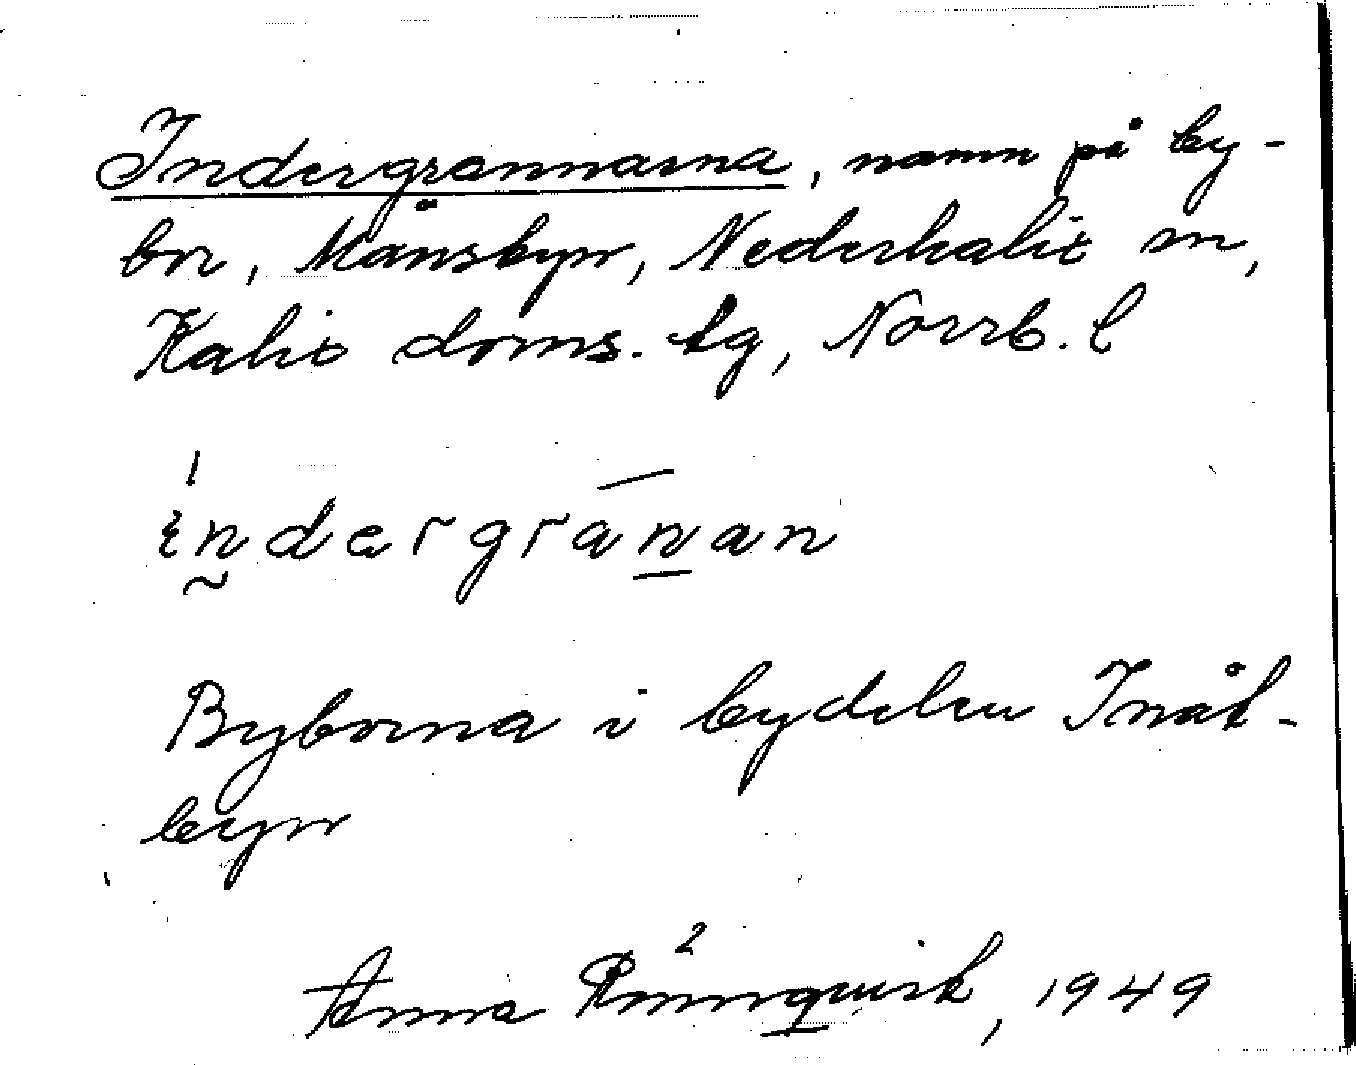 Indergrannarna, namn på by-
bor, Månsbyn, Nederkalix sn,
Kalix doms. tg, Norrb. l
indergranan
Byborna i bydelen Inåt-
byn
Anna Rönnqvist, 1949